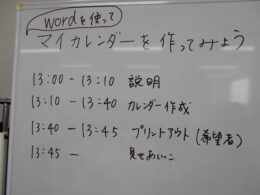 wordを使って
マイカレンダーを作ってみよう
13:00 - 13:10 説明
13:10 - 13:40 カレンダー作成
13:40 - 13:45 プリントアウト(希望者)
13:45 - 見せあいっこ